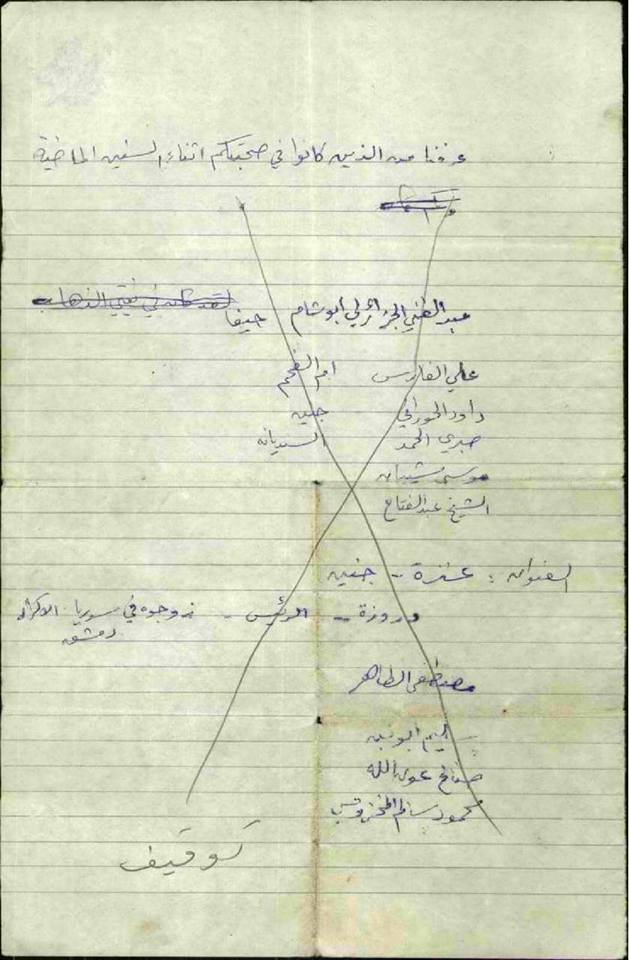 عرفنا من الذين كانوا في صحبتكم اثناء السنين الماضية
عبد الغني الجزائرلي ابو شام حيفا لقد كان في نيتي الذهاب
علي الفارس ام الفحم
داود الحوراني جنين
صبري الحمد السنديانه
موسى
الشيخ عبد الفتاح
العنوان : عنزة - جنين
دروزة - الرئس - زوجوه في سوريا الاكراد
دمشق
مصطفى الطاهر
سليم ابو
صالح عوض الله
محمود سالم المخزومي
توقيف